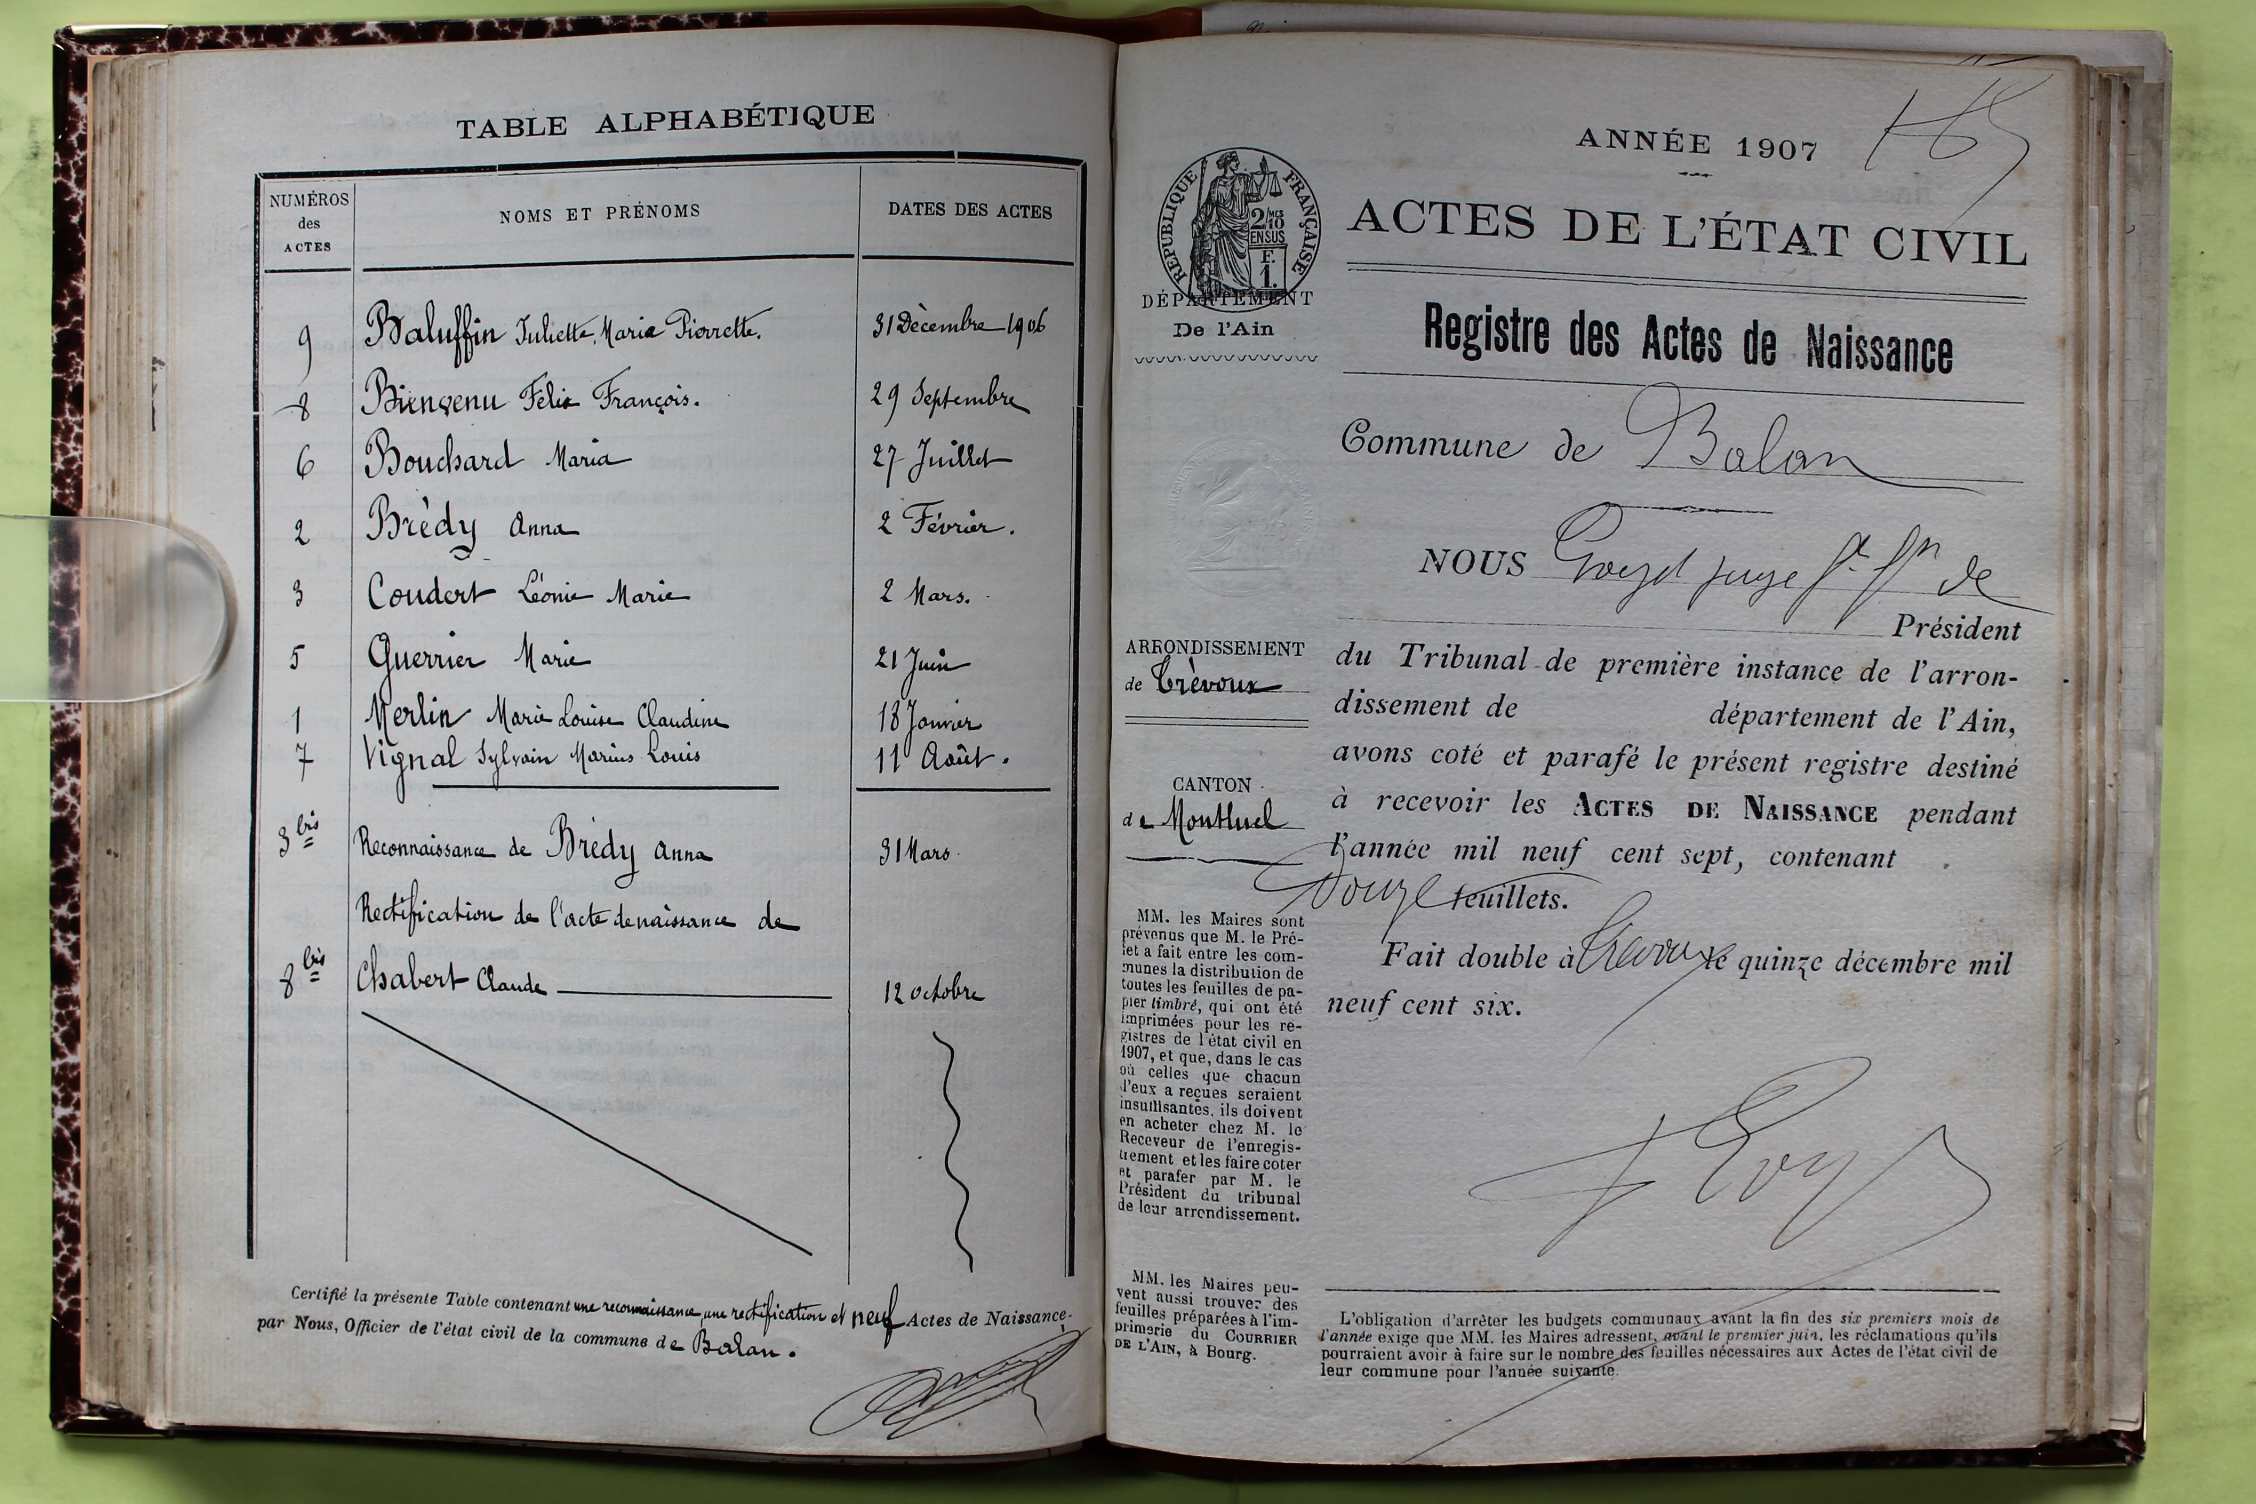 TABLE ALPHABÉTIQUE
NUMÉROS des ACTES NOMS ET PRÉNOMS DATES DES ACTES
9 Baluffin Juliette, Maria Pierrette. 31 Décembre 1906
8 Bienvenu Félix François. 29 Septembre
6 Bouchard Maria 27 Juillet
2 Brédy Anna 2 Février.
3 Coudert Léonie Marie 2 Mars.
5 Guerrier Marie 21 Juin
1 Merlin Marie Louise Claudine 18 Janvier
7 Vignal Sylvain Marius Louis 11 Août.
3 bis Reconnaissance de Brédy Anna 31 Mars
Rectification de l'acte de naissance de
8 bis Chabert Claude 12 octobre
Certifié la présente Table contenant une reconnaissance, une rectification et neuf Actes de Naissance
par Nous, Officier de l'état civil de la commune de Balan.
ANNÉE 1907
RÉPUBLIQUE FRANÇAISE
2/10 MES
EN SUS
F.
1.
DÉPARTEMENT
De l'Ain
ARRONDISSEMENT
de Trévoux
CANTON
de Montluel
MM. les Maires sont
prévenus que M. le Pré-
fet a fait entre les com-
munes la distribution de
toutes les feuilles de pa-
pier timbré, qui ont été
imprimées pour les re-
gistres de l'état civil en
1907, et que, dans le cas
où celles que chacun
d'eux a reçues seraient
insuffisantes, ils doivent
en acheter chez M. le
Receveur de l'enregis-
trement et les faire coter
et parafer par M. le
Président du tribunal
de leur arrondissement.
MM. les Maires peu-
vent aussi trouver des
feuilles préparées à l'im-
primerie du COURRIER
DE L'AIN, à Bourg.
ACTES DE L'ÉTAT CIVIL
Registre des Actes de Naissance
Commune de Balan
NOUS juge de
Président
du Tribunal de première instance de l'arron-
dissement de département de l'Ain,
avons coté et parafé le présent registre destiné
à recevoir les ACTES DE NAISSANCE pendant
l'année mil neuf cent sept, contenant
douze feuillets.
Fait double à Trévoux le quinze décembre mil
neuf cent six.
L'obligation d'arrêter les budgets communaux avant la fin des six premiers mois de
l'année exige que MM. les Maires adressent, avant le premier juin, les réclamations qu'ils
pourraient avoir à faire sur le nombre des feuilles nécessaires aux Actes de l'état civil de
leur commune pour l'année suivante.